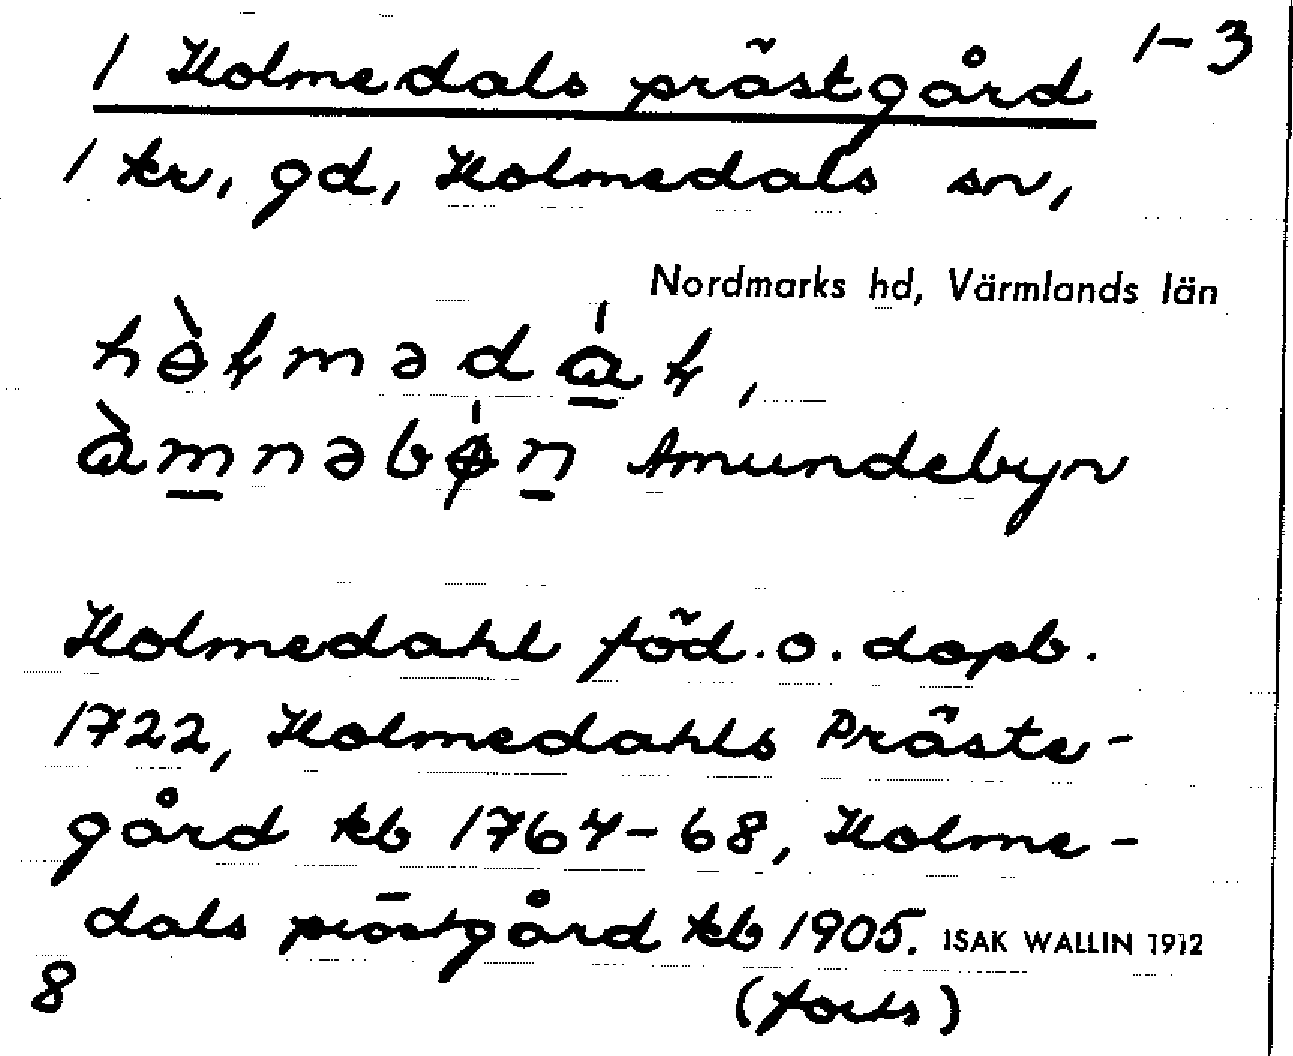 1 Holmedals prästgård 1-3
1 kr, gd, Holmedals sn,
Nordmarks hd, Värmlands län
Amundebyn
Holmedahl föd. o. dopb.
1722, Holmedahls Präste-
gård kb 1764-68, Holme-
dals prästgård kb 1905. ISAK WALLIN 1912
8 (forts)